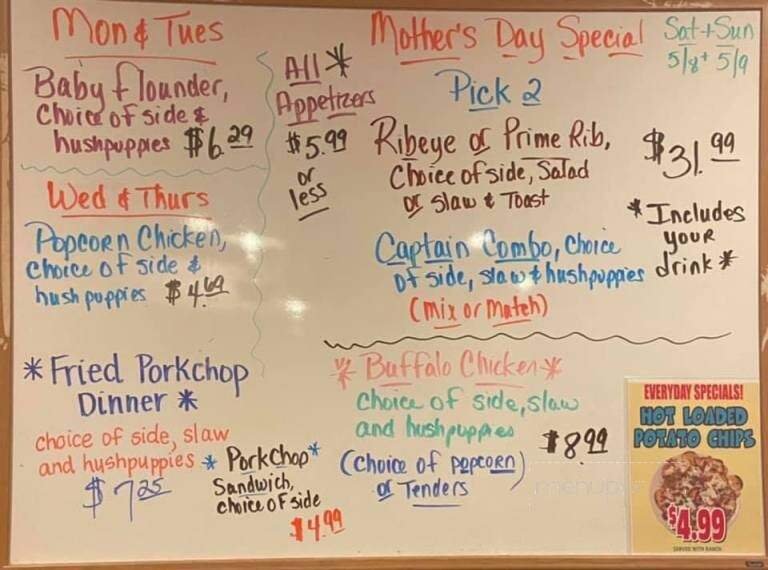 Mon & Tues
Baby flounder,
choice of side &
hushpuppies $6.29
Wed & Thurs
Popcorn Chicken,
choice of side &
hush puppies $4.69
All *
Appetizers
$5.99
or
less
Mother's Day Special
Sat + Sun
5/8 + 5/9
Pick 2
Ribeye or Prime Rib,
Choice of side, Salad
or slaw & Toast
$31.99
* Includes
your
drink *
Captain Combo, choice
of side, slaw & hushpuppies
(mix or match)
* Fried Porkchop
Dinner *
choice of side, slaw
and hushpuppies
$7.25
* Porkchop *
Sandwich,
choice of side
$4.99
* Buffalo Chicken *
choice of side, slaw
and hushpuppies
$8.99
(choice of popcorn)
or Tenders
EVERYDAY SPECIALS!
HOT LOADED
POTATO CHIPS
$4.99
SERVED WITH RANCH